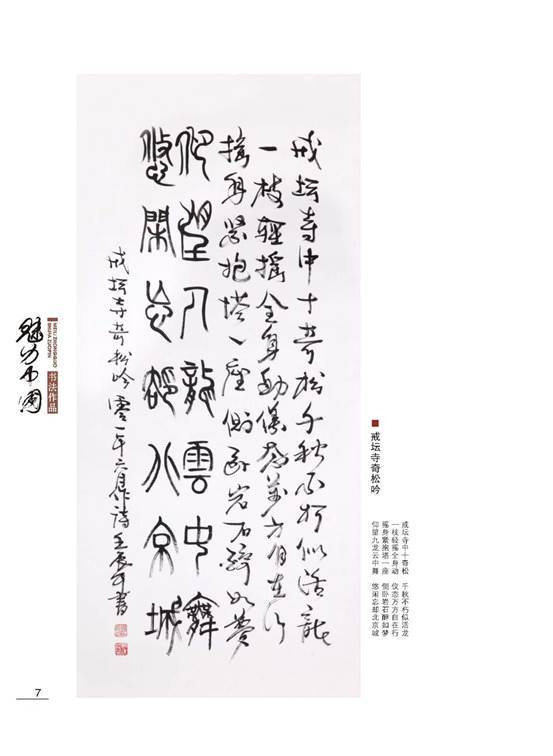 戒坛寺奇松吟
戒坛寺中十奇松 千秋不朽似活龙
一枝轻摇全身动 仪态万方自在行
摇身紧抱塔一座 侧卧岩石醉如梦
仰望九龙云中舞 悠闲忘却北京城
戒坛寺中十奇松千秋不朽似活龙
一枝轻摇全身动仪态万方自在行
摇身紧抱塔一座侧卧岩石醉如梦
仰望九龍雲中舞
悠閑忘却北京城
戒坛寺奇松吟 零一年六月作诗 壬辰年书
魅力中国
MEILI ZHONGGUO
SHUFA ZUOPIN
书法作品
7